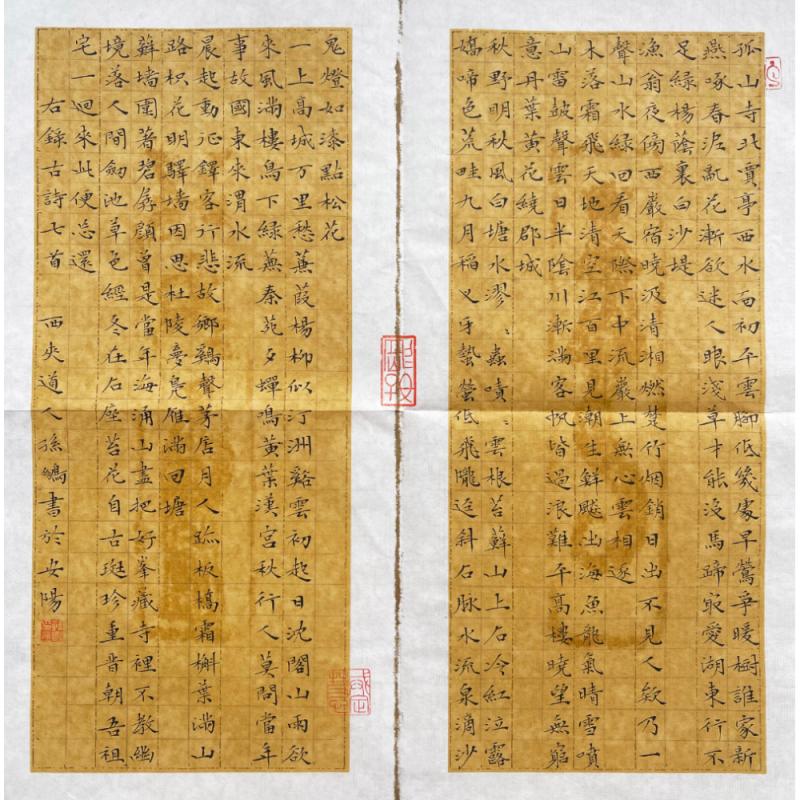 孤山寺北賈亭西水面初平雲腳低幾處早鶯爭暖樹誰家新
燕啄春泥亂花漸欲迷人眼淺草才能沒馬蹄最愛湖東行不
足綠楊蔭裏白沙堤
漁翁夜傍西巖宿曉汲清湘燃楚竹烟銷日出不見人欸乃一
聲山水綠回看天際下中流巖上無心雲相逐
木落霜飛天地清空江百里見潮生鮮飈出海魚龍氣晴雪噴
山雷鼓聲雲日半陰川漸滿客帆皆過浪難平高樓曉望無窮
意丹葉黃花繞郡城
秋野明秋風白塘水漻〻蟲嘖〻雲根苔蘚山上石冷紅泣露
嬌啼色荒畦九月稻叉牙蟄螢低飛隴逕斜石脉水流泉滴沙
鬼燈如漆點松花
一上高城万里愁蒹葭楊柳似汀洲谿雲初起日沈閣山雨欲
來風滿樓鳥下綠蕪秦苑夕蟬鳴黃葉漢宮秋行人莫問當年
事故國東來渭水流
晨起動征鐸客行悲故鄉鷄聲茅店月人跡板橋霜槲葉滿山
路枳花明驛墻因思杜陵夢鳧雁滿回塘
蘚墻圍著碧孱顏曾是當年海涌山盡把好峯藏寺裡不教幽
境落人間劒池草色經冬在石座苔花自古班珍重晋朝吾祖
宅一迴來此便忘還
右錄古詩七首 西夾道人孫鳴書於安陽